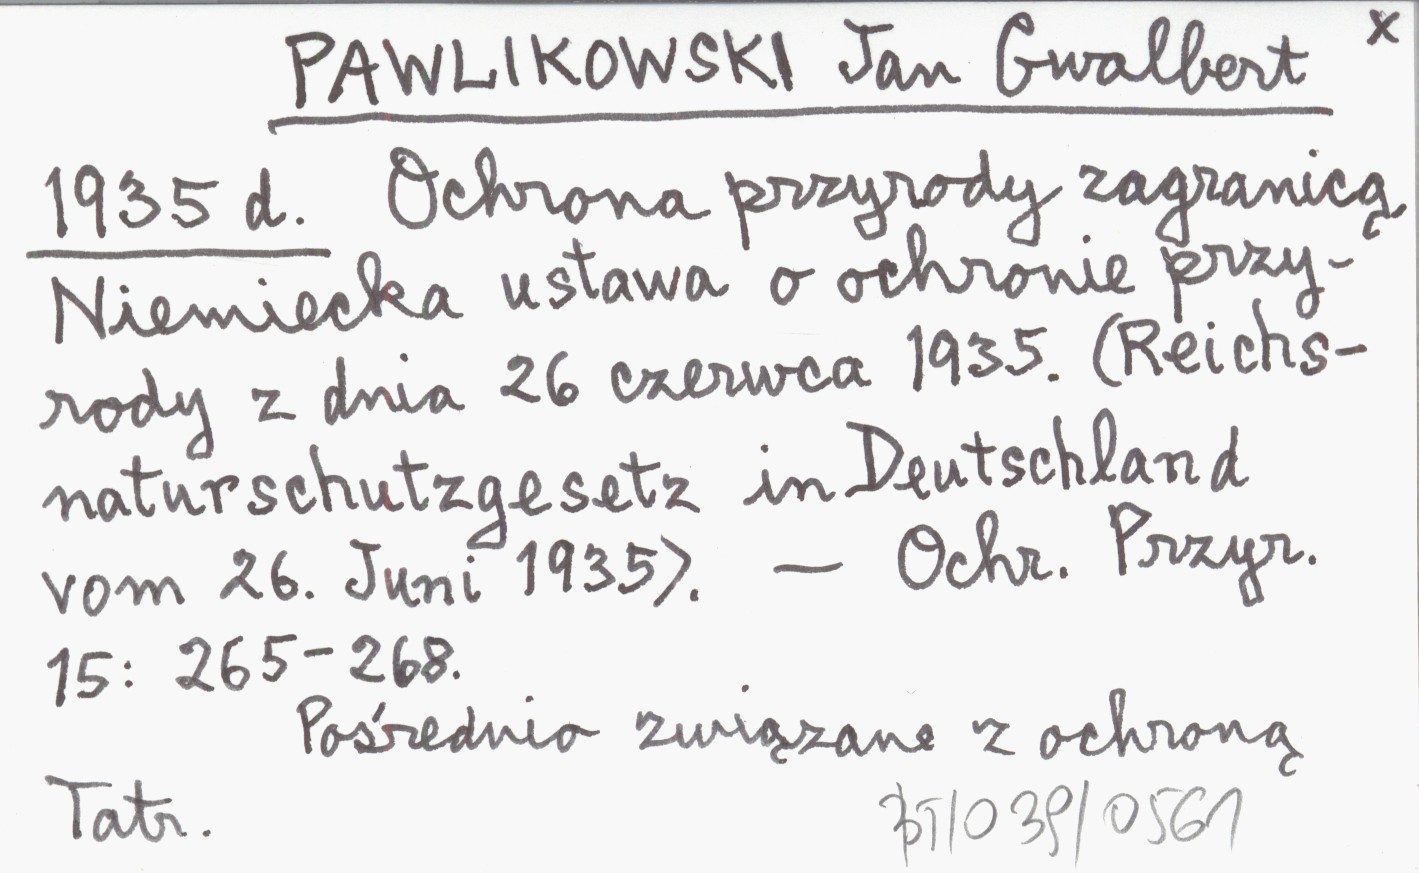 PAWLIKOWSKI Jan Gwalbert x
1935 d. Ochrona przyrody zagranicą.
Niemiecka ustawa o ochronie przy-
rody z dnia 26 czerwca 1935. (Reichs-
naturschutzgesetz in Deutschland
vom 26. Juni 1935). — Ochr. Przyr.
15: 265-268.
Pośrednio związane z ochroną
Tatr.
BT/039/0561